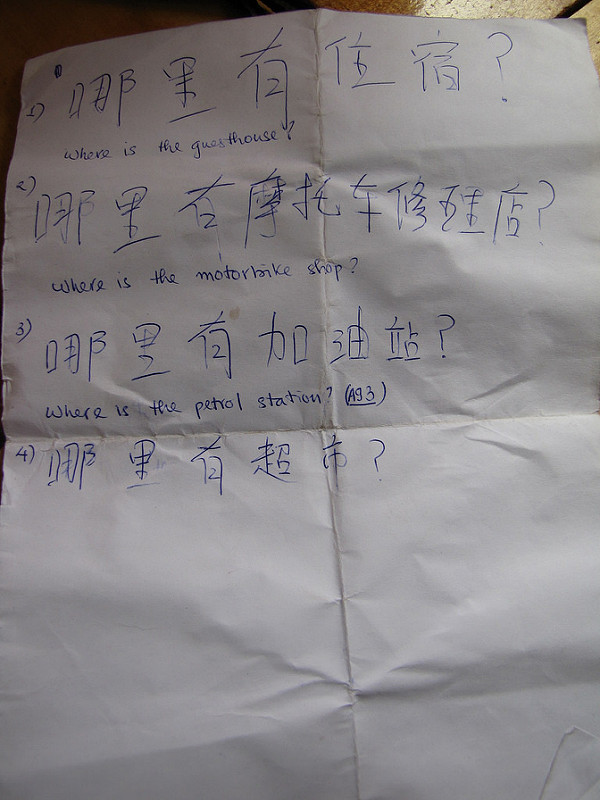 1) 哪里有住宿?
Where is the guesthouse?
2) 哪里有摩托车修理店?
Where is the motorbike shop?
3) 哪里有加油站?
Where is the petrol station? (A93)
4) 哪里有超市?